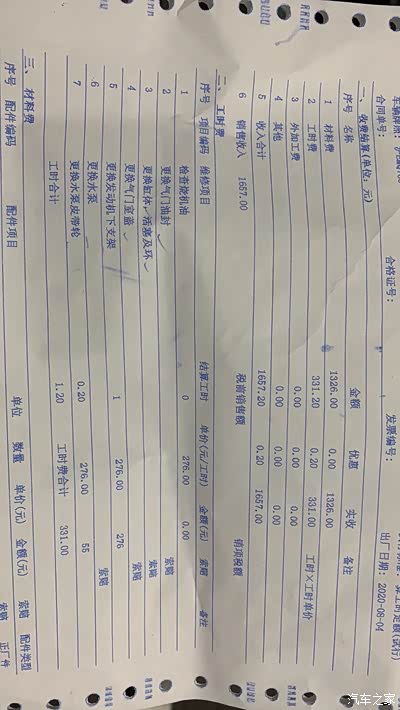 合同单号:
合格证号:
发票编号:
出厂日期: 2020-08-04
一、收费结算(单位:元)
序号 名称 金额 优惠 实收 备注
1 材料费 1326.00 0.00 1326.00
2 工时费 331.20 0.20 331.00 工时×工时单价
3 外加工费 0.00 0.00 0.00
4 其他 0.00 0.00 0.00
5 收入合计 1657.20 0.20 1657.00
6 销售收入 1657.00 税前销售额 销项税额
二、工时费
序号 项目编码 维修项目 结算工时 单价(元/工时) 金额(元) 索赔 备注
1 检查烧机油 0 276.00 0.00
2 更换气门油封 索赔
3 更换缸体、活塞及环 索赔
4 更换气门室盖 索赔
5 更换发动机下支架 1 276.00 276
6 更换水泵 索赔
7 更换水泵皮带轮 0.20 276.00 55
工时合计 1.20 工时费合计 331.00
三、材料费
序号 配件编码 配件项目 单位 数量 单价(元) 金额(元) 索赔 配件类型
索赔 正厂件
汽车之家